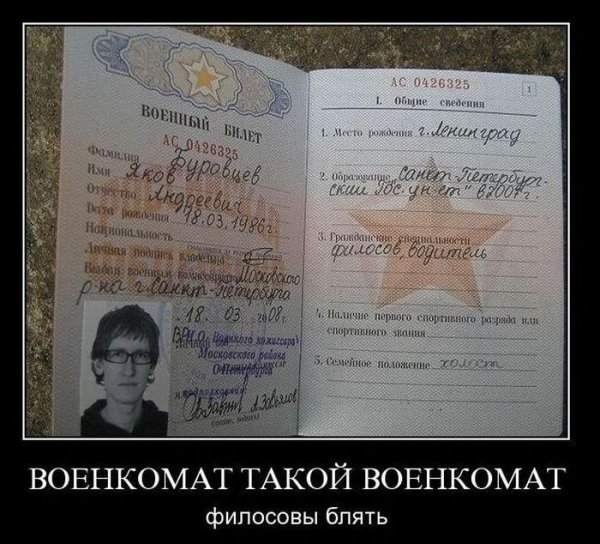 ВОЕННЫЙ БИЛЕТ
АС 0426325
Фамилия Буровцев
Имя Яков
Отчество Андреевич
Дата рождения 18.03.1986г.
Национальность
Личная подпись владельца
Выдан военным комиссариатом Московского
р-на г. Санкт-Петербурга
18. 03 2008г.
ВРИО Военного комиссара
Московского района
подполковник
АС 0426325
1
I. Общие сведения
1. Место рождения г. Ленинград
2. Образование „Санкт-Петербург-
ский гос. ун-ет" в 2007г.
3. Гражданские специальности
филосов, водитель
4. Наличие первого спортивного разряда или
спортивного звания
5. Семейное положение холост
ВОЕНКОМАТ ТАКОЙ ВОЕНКОМАТ
филосовы блять